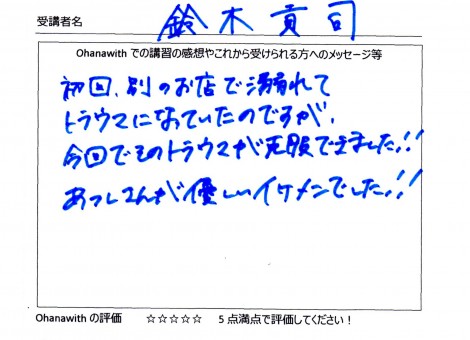 受講者名 鈴木貢司
Ohanawith での講習の感想やこれから受けられる方へのメッセージ等
初回、別のお店で溺れて
トラウマになっていたのですが、
今回でそのトラウマが克服できました!!
あつしさんが優しいイケメンでした!!
Ohanawith の評価 ☆☆☆☆☆ 5 点満点で評価してください!